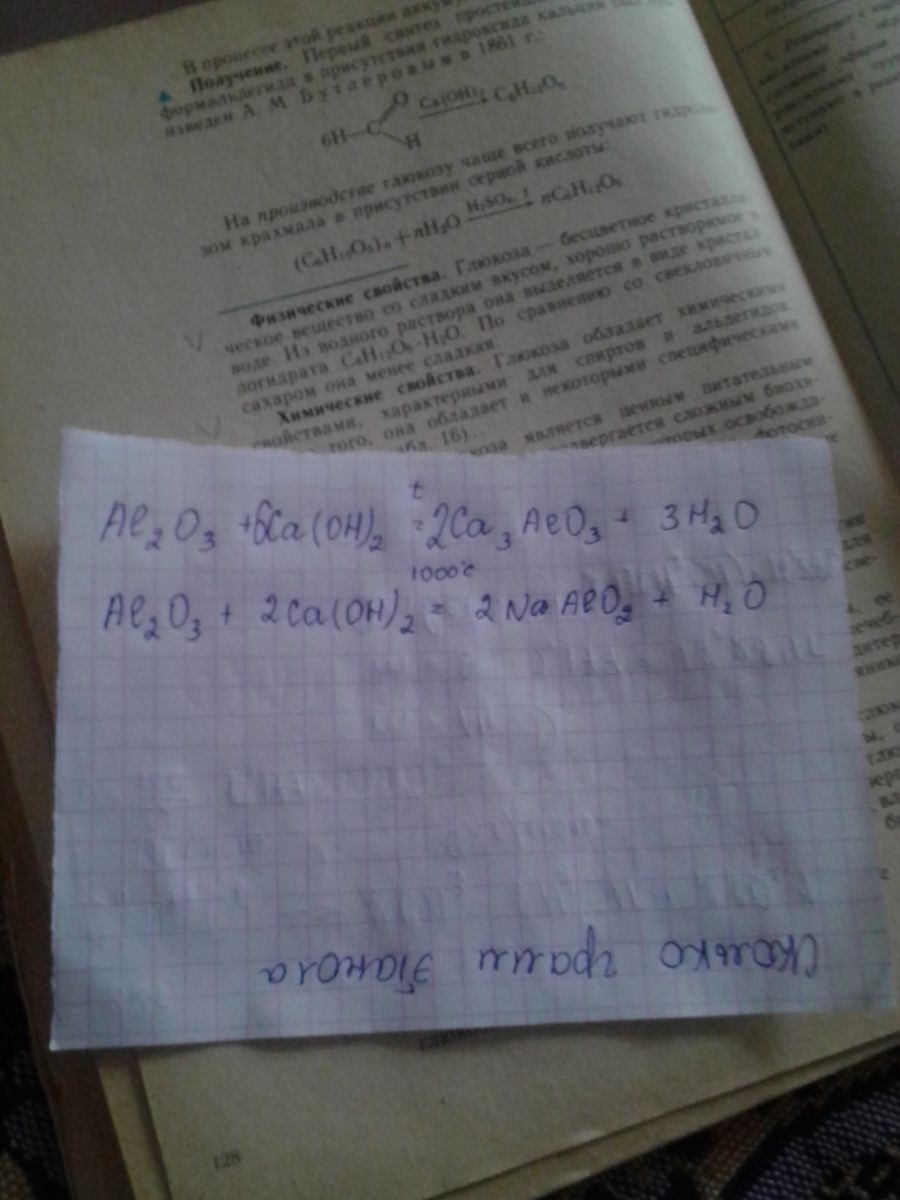 В процессе этой реакции
Получение. Первый синтез
формальдегида в присутствии гидроксида кальция был
изведен А. М. Бутлеровым в 1861 г.:
6H—C O H Ca(OH)₂ → C₆H₁₂O₆
На производстве глюкозу чаще всего получают гидроли-
зом крахмала в присутствии серной кислоты:
(C₆H₁₀O₅)ₙ + nH₂O H₂SO₄, t → nC₆H₁₂O₆
Физические свойства. Глюкоза — бесцветное кристалли-
ческое вещество со сладким вкусом, хорошо растворимое в
воде. Из водного раствора она выделяется в виде кристал-
логидрата C₆H₁₂O₆·H₂O. По сравнению со свекловичным
сахаром она менее сладкая.
Химические свойства. Глюкоза обладает химическими
свойствами, характерными для спиртов и альдегидов.
того, она обладает и некоторыми специфическими
абл. 16).
коза является ценным питательным
двергается сложным биохи-
торых освобожда-
фотосин-
t
Al₂O₃ + 6Ca(OH)₂ = 2Ca₃AlO₃ + 3H₂O
1000°c
Al₂O₃ + 2Ca(OH)₂ = 2NaAlO₂ + H₂O
Сколько грамм этанола
128